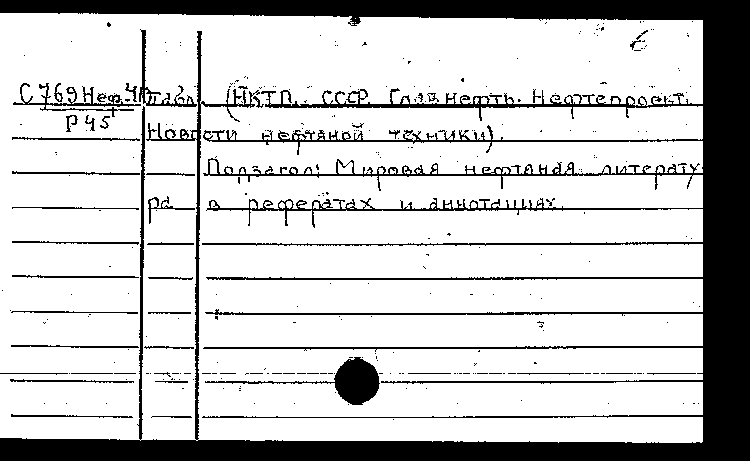 6
С769Неф.41 табл. (НКТП. СССР. Главнефть. Нефтепроект.
Р45
Новости нефтяной техники).
Подзагол: Мировая нефтяная литерату-
ра в рефератах и аннотациях.